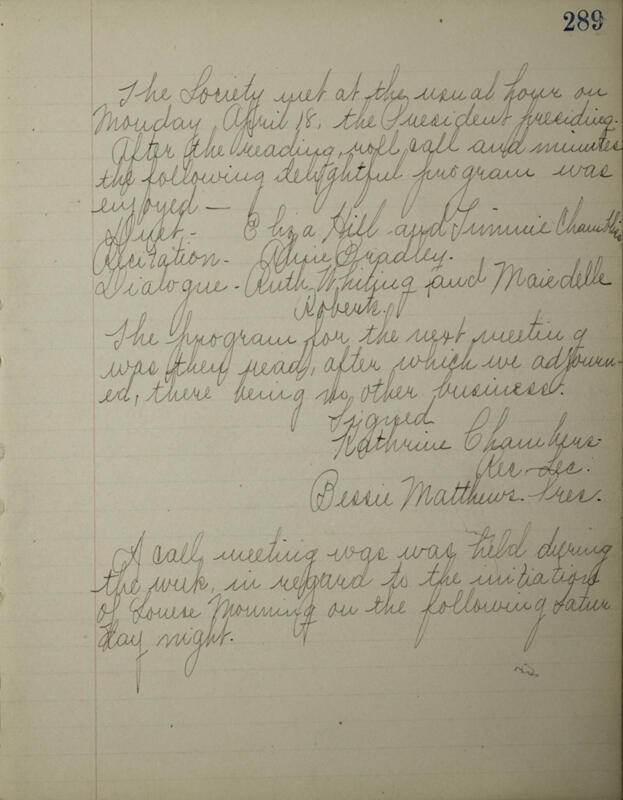 289
The Society met at the usual hour on
Monday, April 18, the President presiding.
After the reading, roll call and minutes
the following delightful program was
enjoyed —
Duet - Eliza Hill and Timmie Chamblin
Recitation - Bradley.
Dialogue - Ruth Whiting and Maiedelle
Roberts.
The program for the next meeting
was then read, after which we adjourn-
ed, there being no other business.
Signed
Kathrine Chambers
Rec. Sec.
Bessie Matthews. Pres.
A call meeting was was held during
the week, in regard to the initiation
of Louise Mourning on the following Satur
day night.